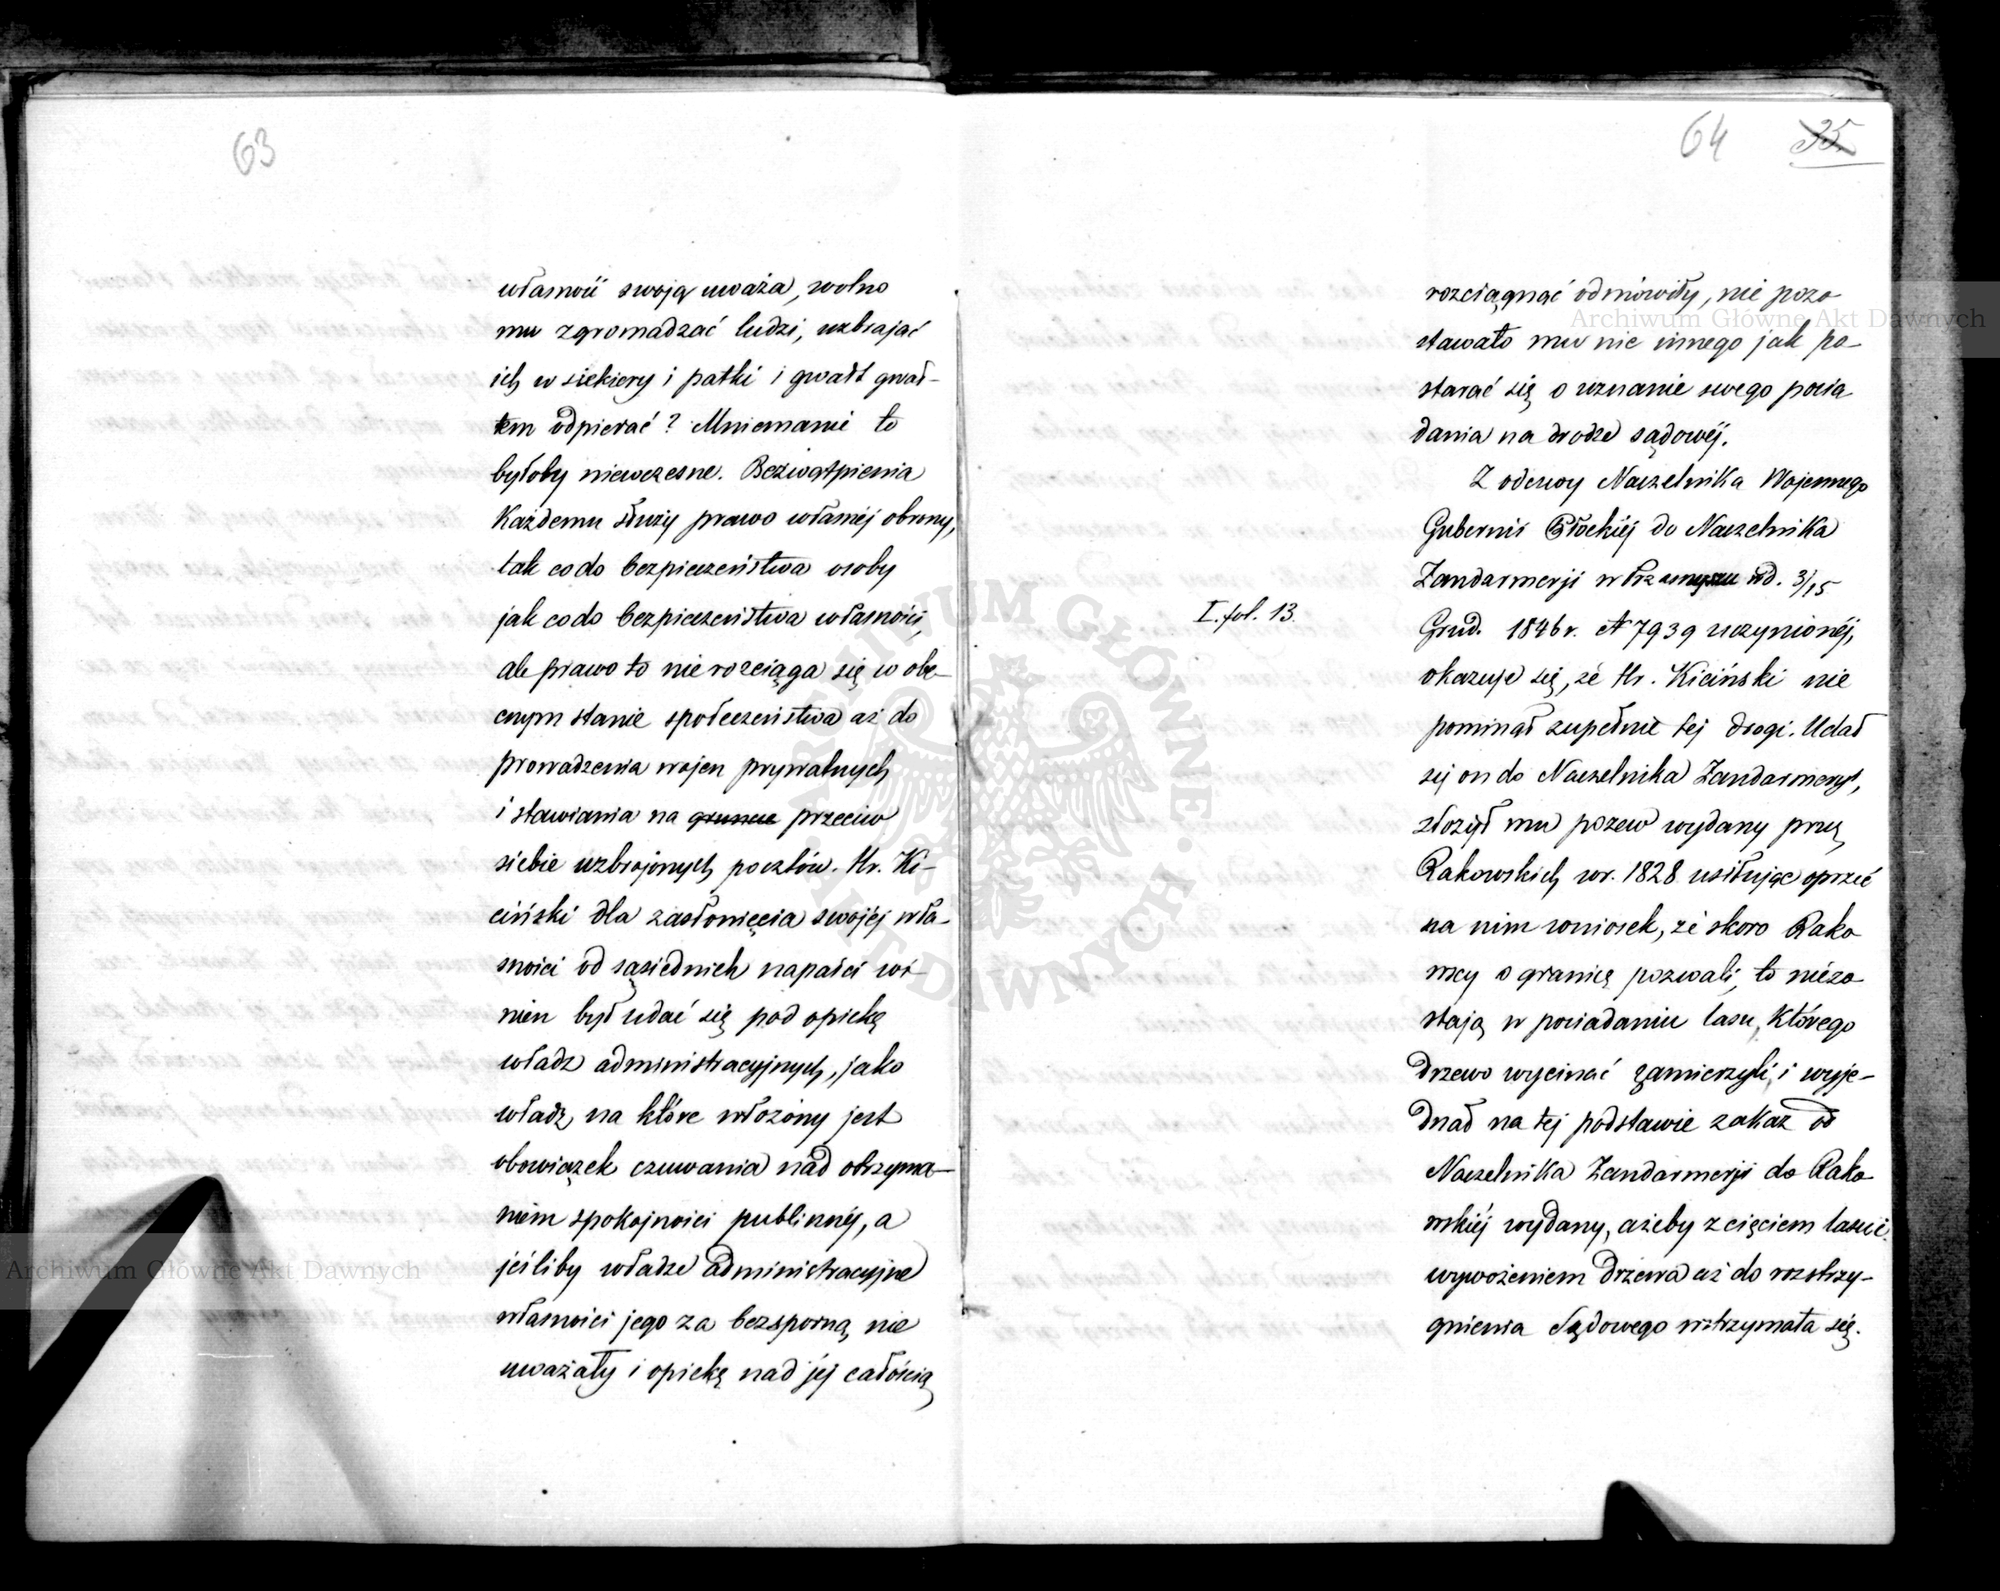 63
własność swoją uważa, wolno
mu zgromadzać ludzi, uzbrajać
ich w siekiery i pałki i gwałt gwał-
tem odpierać? Mniemanie to
byłoby niewczesne. Bezwątpienia
każdemu służy prawo własnéj obrony,
tak codo bezpieczeństwa osoby
jak codo bezpieczeństwa własności,
ale prawo to nie rozciąga się w obe-
cnym stanie społeczeństwa aż do
prowadzenia wojen prywatnych
i stawiania na gruncie przeciw
siebie uzbrojonych pocztów. Hr. Ki-
ciński dla zasłonięcia swojéj wła-
sności od sąsiednich napaści wi-
nien był udać się pod opiekę
władz administracyjnych, jako
władz, na które włożony jest
obowiązek czuwania nad otrzyma-
niem spokojności publicznéj, a
jeśliby władze administracyjne
własności jego za bezsporną nie
uważały i opiekę nad jéj całością
64 35
rozciągnąć odmówiły, nie pozo
stawało mu nic innego jak po-
starać się o uznanie swego posia
dania na drodze sądowéj.
Z odezwy Naczelnika Wojennego
Gubernii Płockiéj do Naczelnika
Żandarmerji w Przasnyszu d. 3/15
I. fol. 13.
Grud. 1846 r. N 7939 uczynionéj,
okazuje się, że Hr. Kiciński nie
pominął zupełnie téj drogi. Udał
się on do Naczelnika Żandarmeryi,
złożył mu pozew wydany przez
Rakowskich w r. 1828 usiłując oprzeć
na nim wniosek, że skoro Rako
wscy o granicę pozwali, to niezo
stają w posiadaniu lasu, którego
drzewo wycinać zamierzyli, i wyje-
dnał na téj podstawie zakaz od
Naczelnika Żandarmerji do Rako
wskiéj wydany, ażeby z cięciem lasu i
wywożeniem drzewa aż do rozstrzy-
gnienia Sądowego wstrzymała się.
Archiwum Główne Akt Dawnych
Archiwum Główne Akt Dawnych
ARCHIWUM GŁÓWNE AKT DAWNYCH